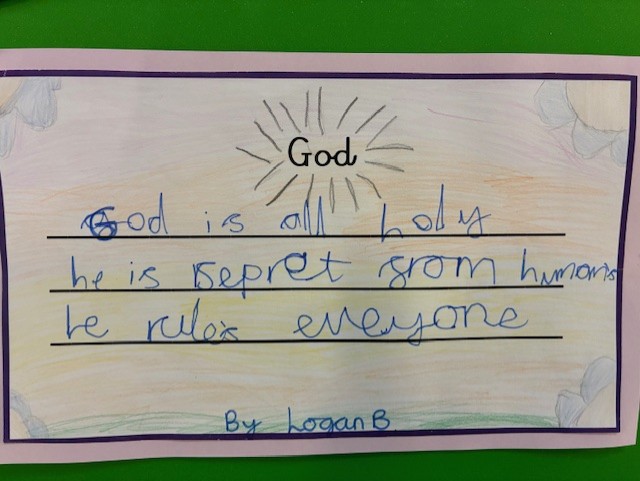 God
God is all holy
he is sepret from humans
he rules eveyone
By Logan B